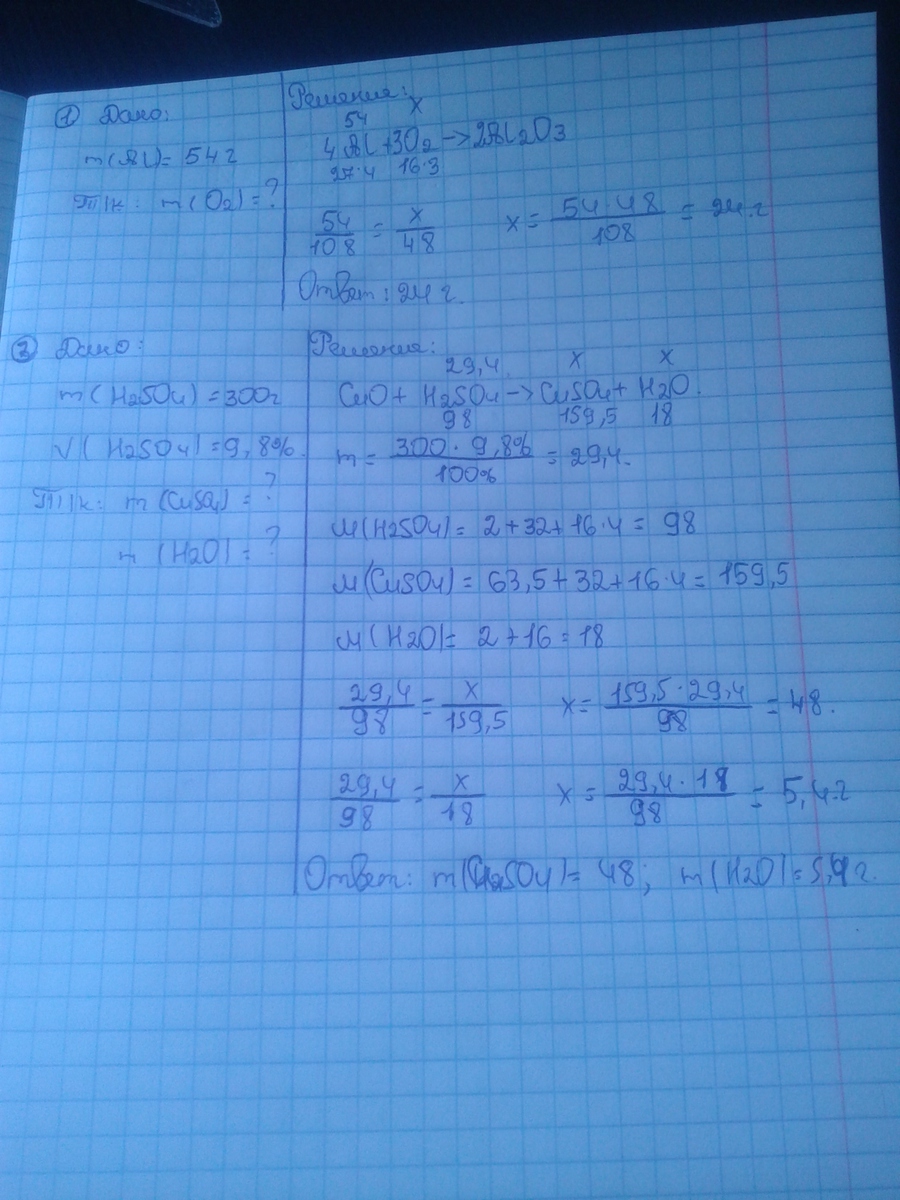 ① Дано:
m(Al)= 54 г
Т/к: m(O2)=?
Решение:
54 x
4Al+3O2→2Al2O3
27·4 16·3
54/108 = x/48 x= 54·48/108 = 24 г
Ответ: 24 г.
② Дано:
m(H2SO4)=300г
√(H2SO4)=9,8%
Т/к: m(CuSO4)=?
m(H2O)=?
Решение:
29,4 x x
CuO+ H2SO4→CuSO4+ H2O.
98 159,5 18
m= 300·9,8%/100% = 29,4.
M(H2SO4)= 2+32+16·4= 98
M(CuSO4)= 63,5+32+16·4= 159,5
M(H2O)= 2+16=18
29,4/98 = x/159,5 x= 159,5·29,4/98 = 48.
29,4/98 = x/18 x= 29,4·18/98 = 5,4г
Ответ: m(CuSO4)= 48; m(H2O)=5,4г.